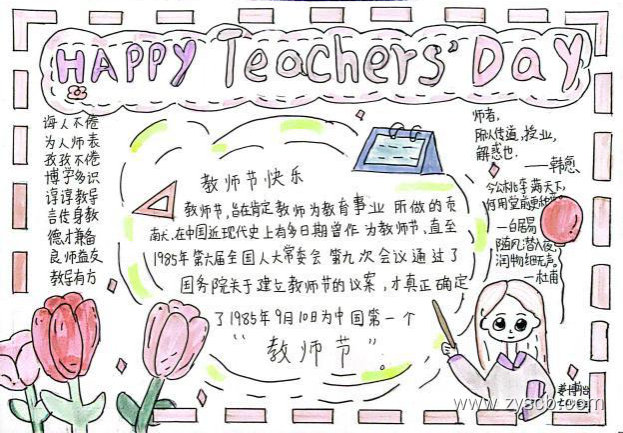 HAPPY Teachers' Day
诲人不倦
为人师表
孜孜不倦
博学多识
谆谆教导
言传身教
德才兼备
良师益友
教导有方
教师节快乐
教师节,旨在肯定教师为教育事业所做的贡
献大。在中国近现代史上有多日期曾作为教师节,直至
1985年第六届全国人大常委会第九次会议通过了
国务院关于建立教师节的议案,才真正确定
了1985年9月10日为中国第一个
“教师节”。
师者,
所以传道,授业,
解惑也.
——韩愈
令公桃李满天下,
何用堂前更
—白居易
随风潜入夜,
润物细无声。
—杜甫
www.zyscb.com